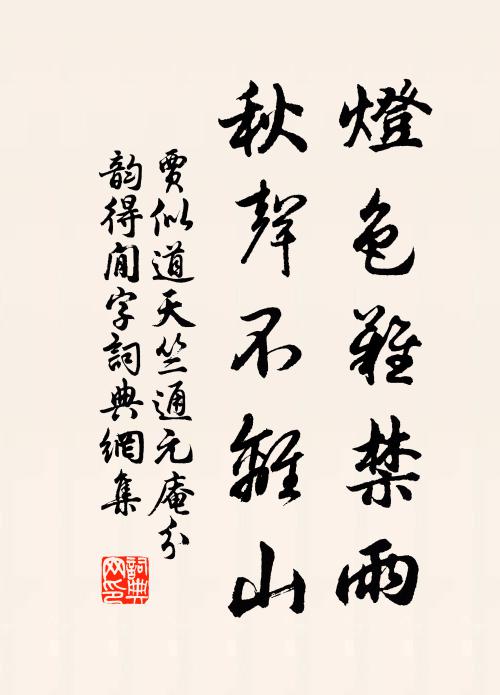 燈色難禁雨
秋聲不離山
賈似道天竺通元庵分
韵得閒字詞典網集
詞典网印